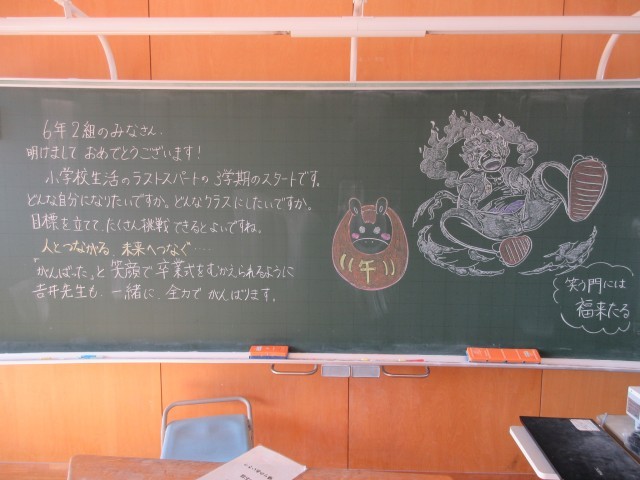 6年2組のみなさん、
明けまして おめでとうございます!
小学校生活のラストスパートの 3学期のスタートです。
どんな自分になりたいですか。どんなクラスにしたいですか。
目標を立てて、たくさん挑戦できるとよいですね。
人とつながる、未来へつなぐ・・・・
「がんばった」と 笑顔で 卒業式をむかえられるように
吉井先生も、一緒に、全力で がんばります。
午
笑う門には
福来たる